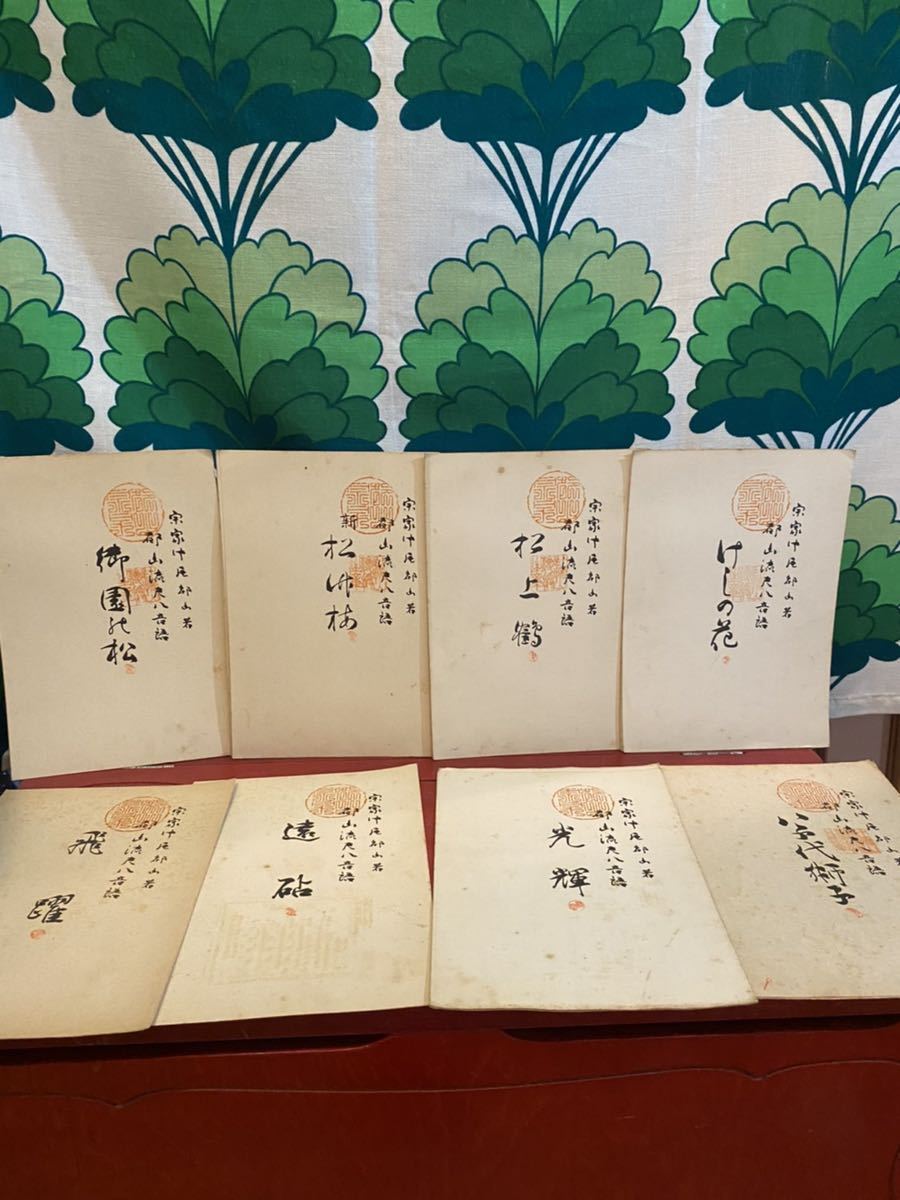 宗家中尾都山著
都山流尺八音譜
けしの花
宗家中尾都山著
都山流尺八音譜
松上鶴
宗家中尾都山著
都山流尺八音譜
新松竹梅
宗家中尾都山著
都山流尺八音譜
御園の松
宗家中尾都山著
都山流尺八音譜
八千代獅子
宗家中尾都山著
都山流尺八音譜
光輝
宗家中尾都山著
都山流尺八音譜
遠砧
宗家中尾都山著
都山流尺八音譜
飛躍